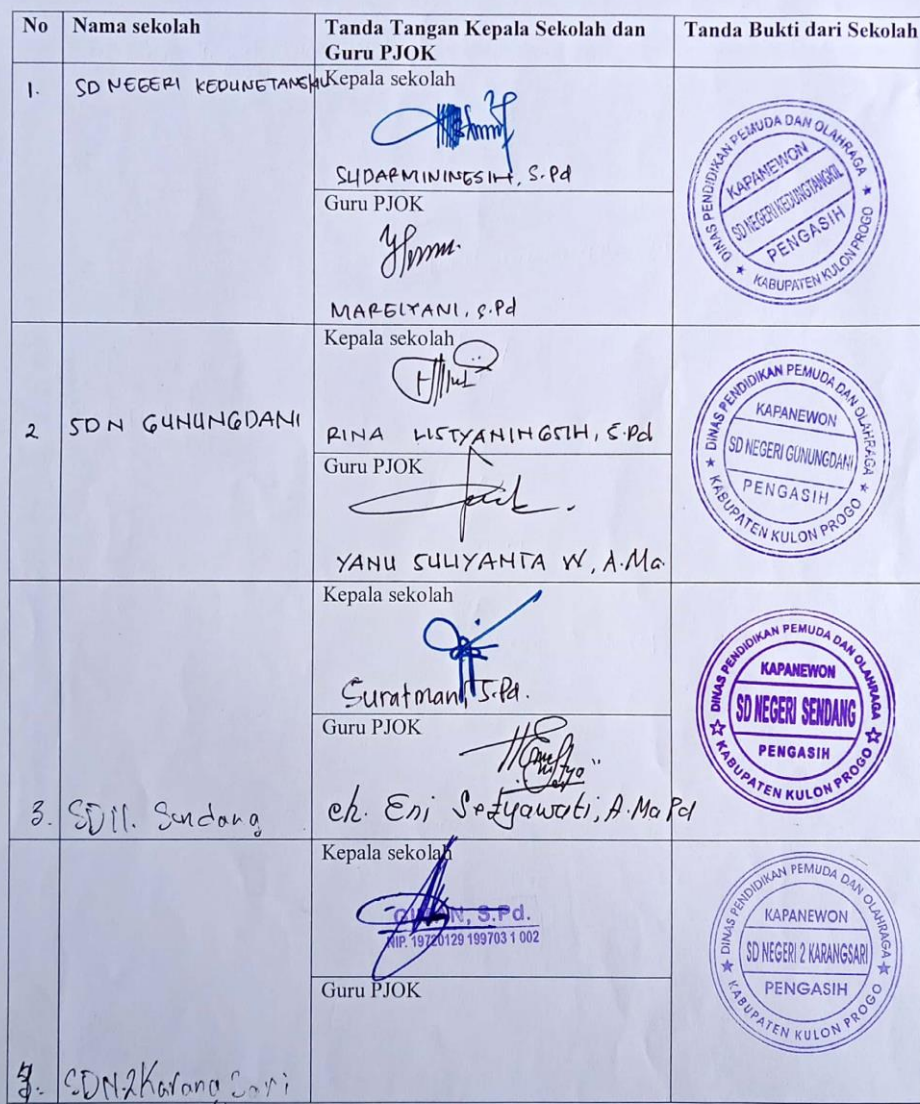 No Nama sekolah Tanda Tangan Kepala Sekolah dan Guru PJOK Tanda Bukti dari Sekolah
1. SD NEGERI KEDUNGTANGKIL
Kepala sekolah
SUDARMININGSIH, S.Pd
Guru PJOK
MARELYANI, S.Pd
DINAS PENDIDIKAN PEMUDA DAN OLAHRAGA
KAPANEWON
SD NEGERI KEDUNGTANGKIL
PENGASIH
KABUPATEN KULON PROGO
2 SDN GUNUNGDANI
Kepala sekolah
RINA LISTYANINGSIH, S.Pd
Guru PJOK
YANU SULIYANTA W, A.Ma.
DINAS PENDIDIKAN PEMUDA DAN OLAHRAGA
KAPANEWON
SD NEGERI GUNUNGDANI
PENGASIH
KABUPATEN KULON PROGO
3. SDN. Sendang
Kepala sekolah
Suratman, S.Pd.
Guru PJOK
Ch. Eni Setyawati, A.Ma Pd
DINAS PENDIDIKAN PEMUDA DAN OLAHRAGA
KAPANEWON
SD NEGERI SENDANG
PENGASIH
KABUPATEN KULON PROGO
SDN 2 Karang Sari
Kepala sekolah
S.Pd.
NIP. 19720129 199703 1 002
Guru PJOK
DINAS PENDIDIKAN PEMUDA DAN OLAHRAGA
KAPANEWON
SD NEGERI 2 KARANGSARI
PENGASIH
KABUPATEN KULON PROGO